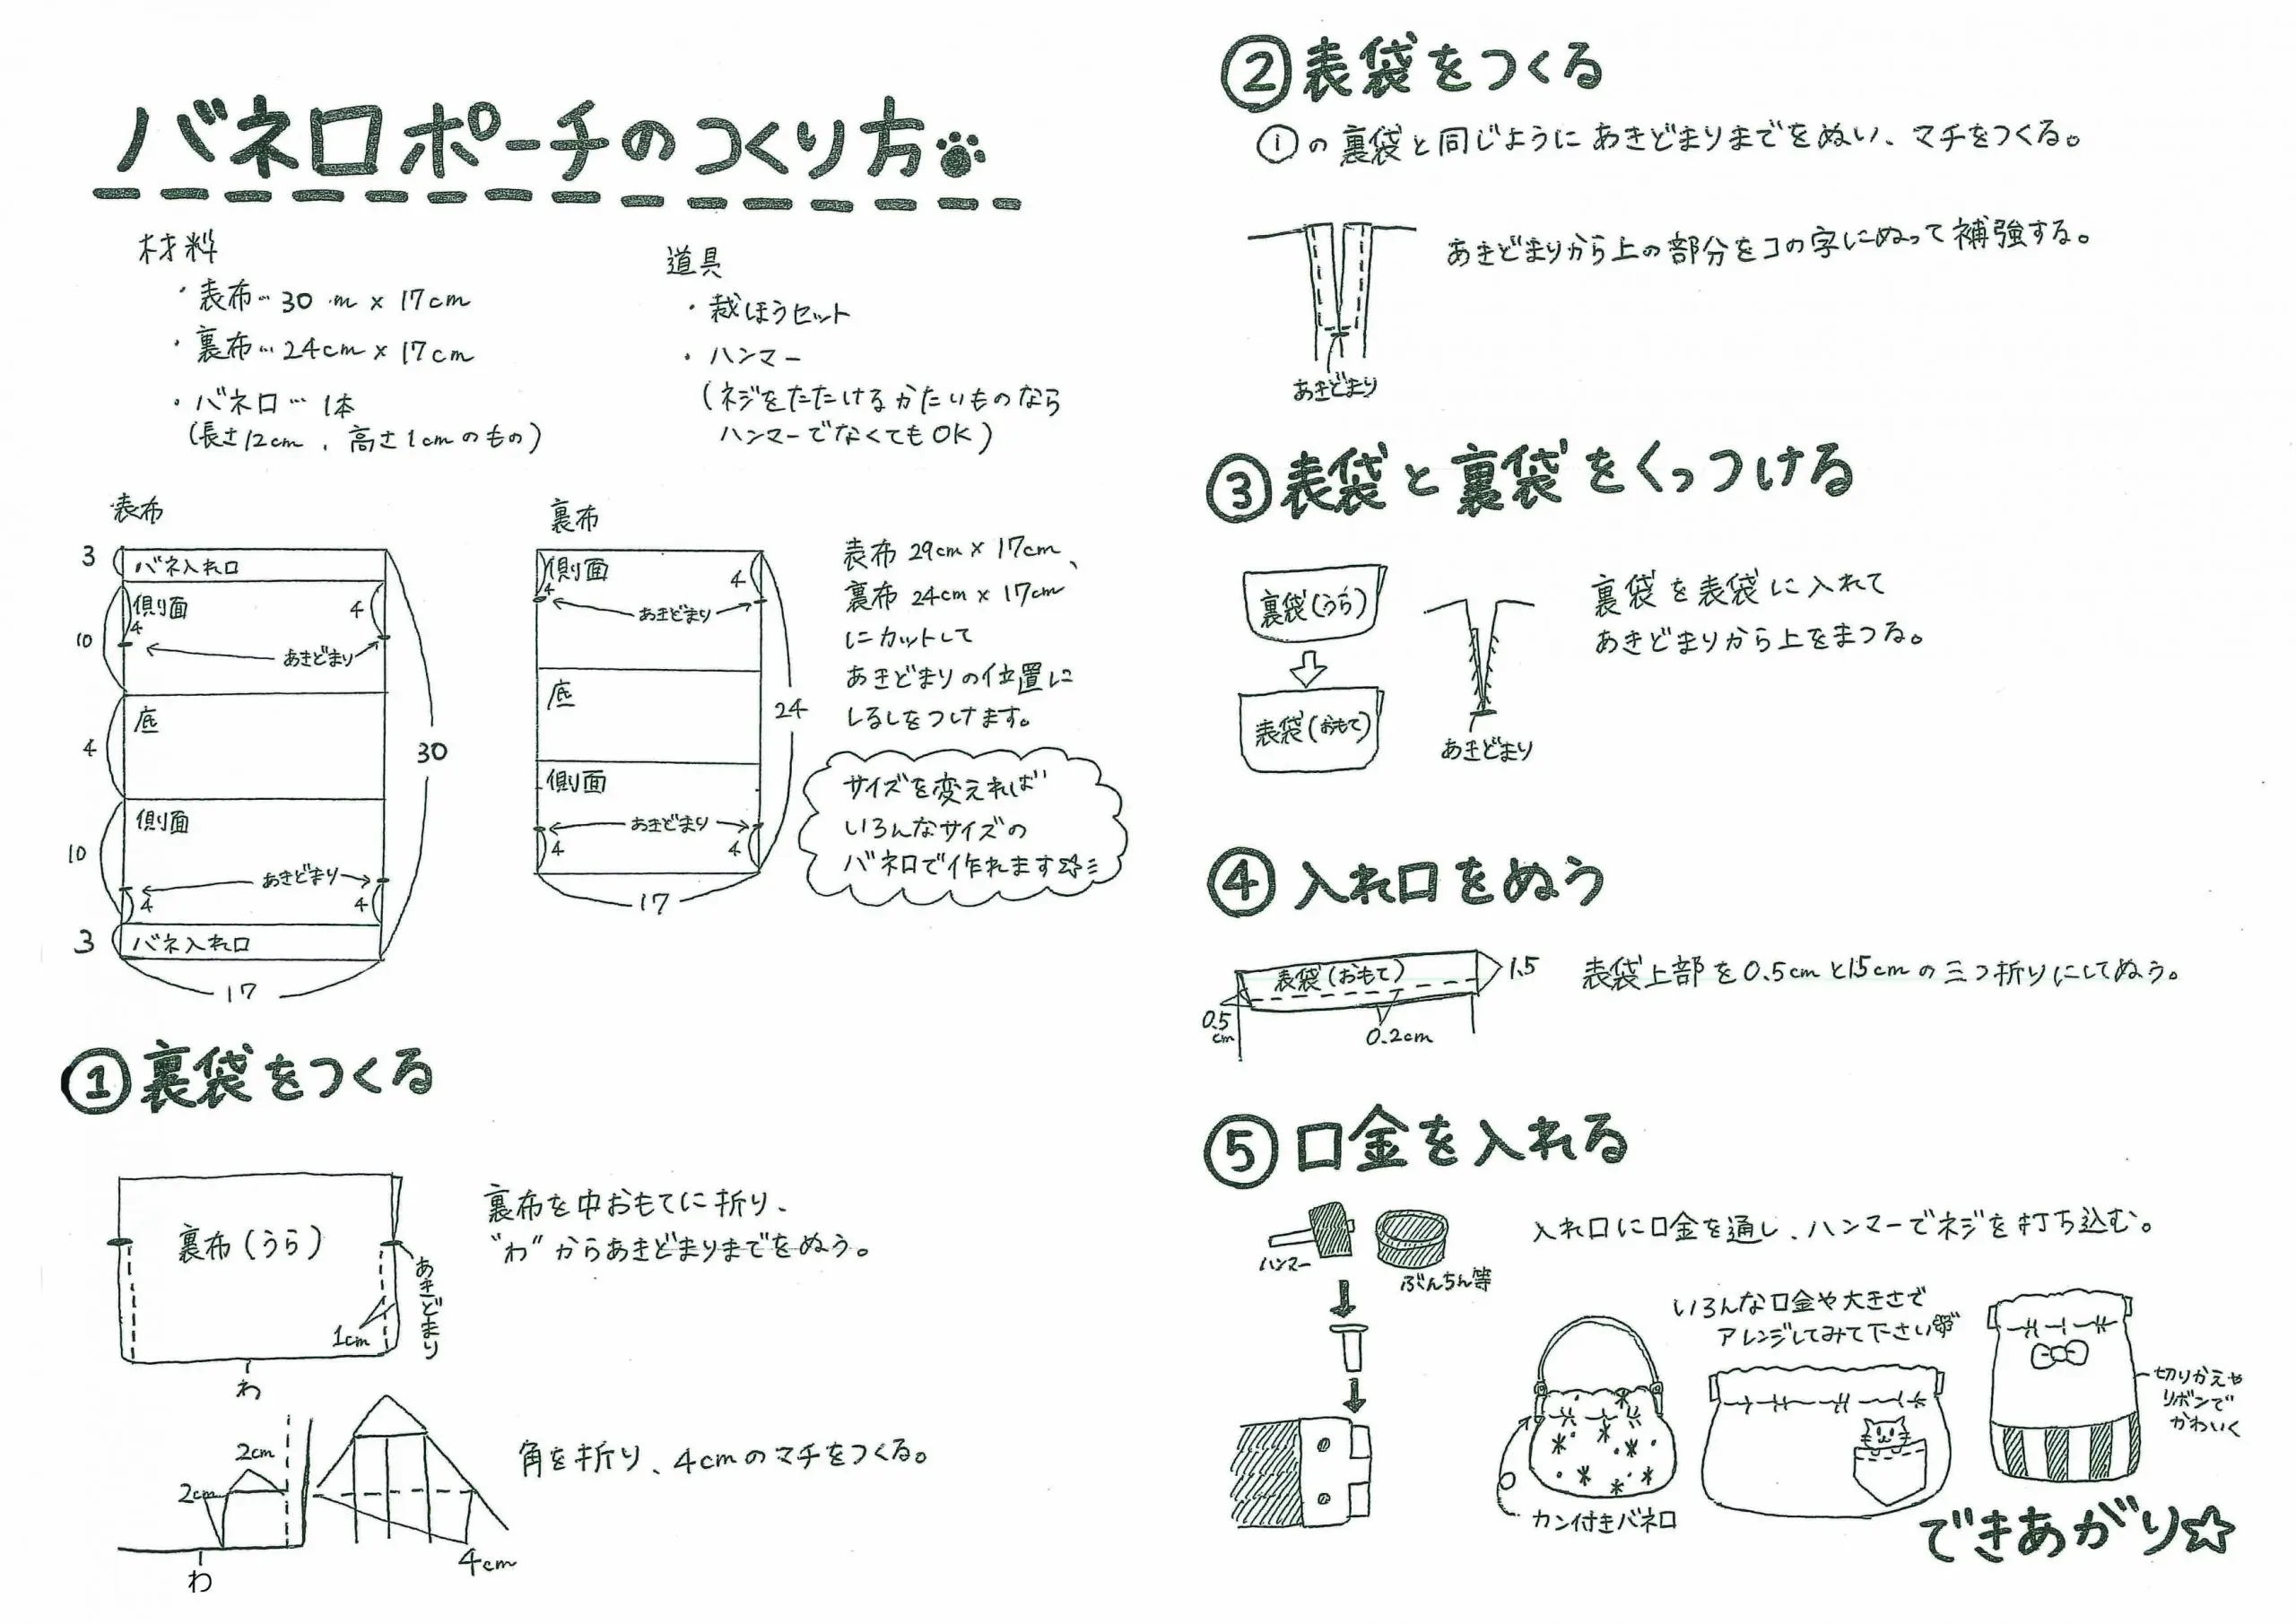 バネ口ポーチのつくり方
材料
・表布…30 m × 17cm
・裏布…24cm × 17cm
・バネ口… 1本
(長さ12cm、高さ1cmのもの)
道具
・裁ほうセット
・ハンマー
(ネジをたたけるかたいものなら
ハンマーでなくてもOK)
表布
3
バネ入れ口
側面
4
4
10
あきどまり
底
4
30
側面
10
あきどまり
4
4
3
バネ入れ口
17
裏布
側面
4
4
あきどまり
底
24
側面
あきどまり
4
4
17
表布 29cm × 17cm、
裏布 24cm × 17cm
にカットして
あきどまりの位置に
しるしをつけます。
サイズを変えれば
いろんなサイズの
バネ口で作れます☆
①裏袋をつくる
裏布(うら)
あきどまり
1cm
わ
裏布を中おもてに折り、
"わ"からあきどまりまでをぬう。
2cm
2cm
わ
4cm
角を折り、4cmのマチをつくる。
②表袋をつくる
①の裏袋と同じようにあきどまりまでをぬい、マチをつくる。
あきどまりから上の部分をコの字にぬって補強する。
あきどまり
③表袋と裏袋をくっつける
裏袋(うら)
表袋(おもて)
あきどまり
裏袋を表袋に入れて
あきどまりから上をまつる。
④入れ口をぬう
表袋(おもて)
1.5
0.5
cm
0.2cm
表袋上部を0.5cmと1.5cmの三つ折りにしてぬう。
⑤口金を入れる
ハンマー
ぶんちん等
入れ口に口金を通し、ハンマーでネジを打ち込む。
いろんな口金や大きさで
アレンジしてみて下さい
カン付きバネ口
切りかえや
リボンで
かわいく
できあがり☆